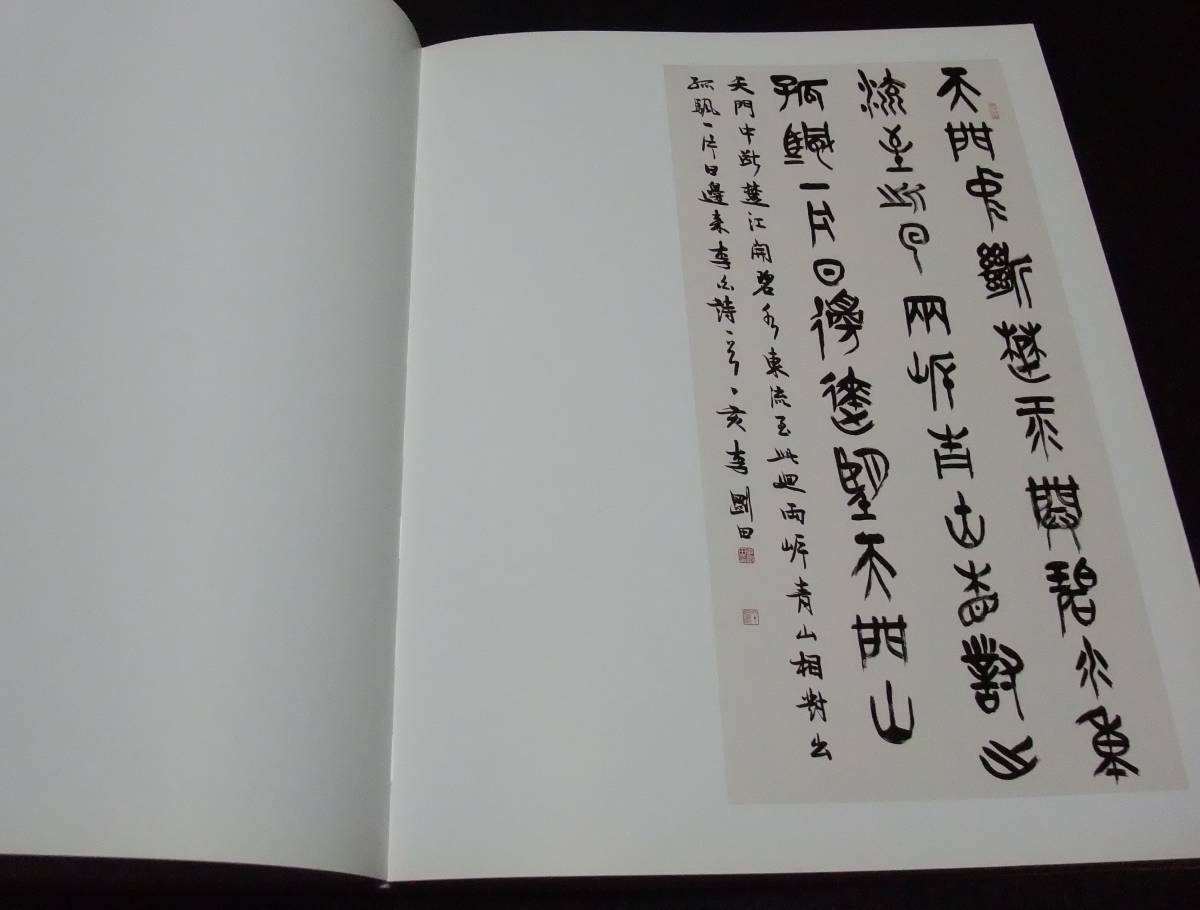 天門中斷楚江開碧水東
流至此回兩岸青山相對出
孤颿一片日邊逨望天門山
天門中斷楚江開碧水東流至此迴兩岸青山相對出
孤颿一片日邊来李白詩一首丁亥李剛田